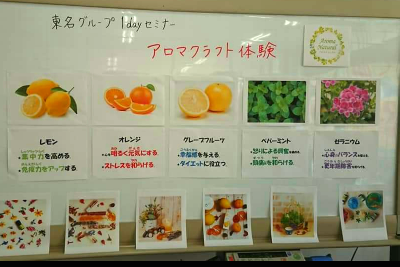 東名グループ 1dayセミナー
アロマクラフト体験
Aroma
Natural
レモン
集中力を高める。
免疫力をアップする。
オレンジ
明るく元気にする。
ストレスを和らげる。
グレープフルーツ
幸福感を与える。
ダイエットに役立つ。
ペパーミント
怒りによる興奮を
頭痛を和らげる。
ゼラニウム
心身のバランスを
更年期障害